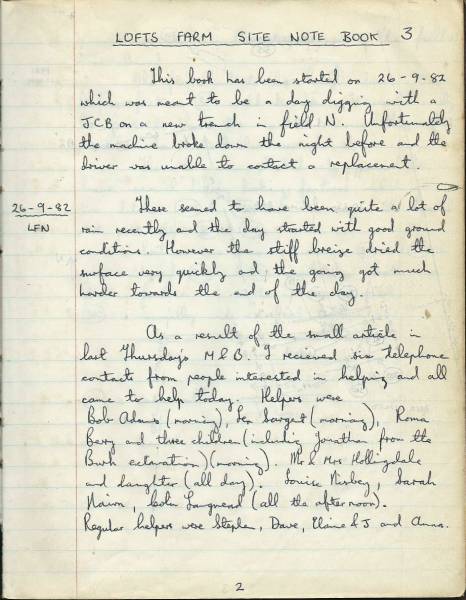 LOFTS FARM SITE NOTE BOOK 3
This book has been started on 26-9-82
which was meant to be a day digging with a
JCB on a new trench in field N. Unfortunately
the machine broke down the night before and the
driver was unable to contact a replacement.
26-9-82
LFN
There seemed to have been quite a lot of
rain recently and the day started with good ground
conditions. However the stiff breize dried the
surface very quickly and the going got much
harder towards the end of the day.
As a result of the small article in
last Thursdays M & B. I recieved six telephone
contacts from people interested in helping and all
came to help today. Helpers were
Bob Adams (morning), Len Sargent (morning), Roma
Berry and three children (including Jonathan from the
excavation) (morning). Mr & Mrs Hollingdale
and daughter (all day). Louise Nisbey, Sarah
Nairn, Colin (all the afternoon).
Regular helpers were Stephen, Dave, Elaine & J and Anna.
2